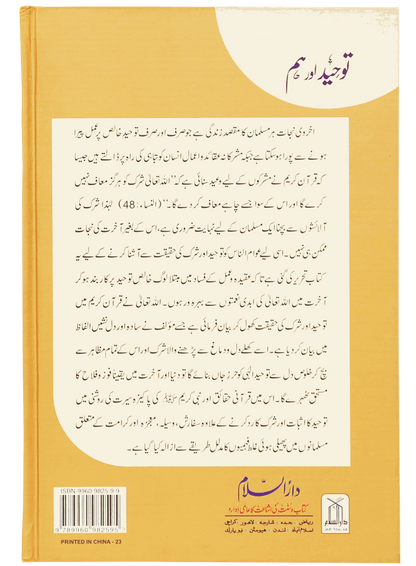 توحید اور ہم
اخروی نجات ہر مسلمان کا مقصد زندگی ہے جو صرف اور صرف توحید خالص پر عمل پیرا
ہونے سے پورا ہو سکتا ہے جبکہ مشرکانہ عقائد و اعمال انسان کو تباہی کی راہ پر ڈالتے ہیں جیسا
کہ قرآن کریم نے مشرکوں کے لیے وعید سنائی ہے کہ ’’اللہ تعالیٰ شرک کو ہرگز معاف نہیں
کرے گا اور اس کے سوا جسے چاہے معاف کر دے گا۔‘‘ (النساء: 48) لہٰذا شرک کی
آلائشوں سے بچنا ایک مسلمان کے لیے نہایت ضروری ہے، اس کے بغیر آخرت کی نجات
ممکن ہی نہیں۔ اسی لیے عوام الناس کو توحید اور شرک کی حقیقت سے آشنا کرنے کے لیے یہ
کتاب تحریر کی گئی ہے تاکہ عقیدہ و عمل کے فساد میں مبتلا لوگ خالص توحید پر کاربند ہو کر
آخرت میں اللہ تعالیٰ کی ابدی نعمتوں سے بہرہ ور ہوں۔ اللہ تعالیٰ نے قرآن کریم میں
توحید اور شرک کی حقیقت کھول کر بیان فرمائی ہے جسے مؤلف نے سادہ اور دل نشیں الفاظ
میں بیان کر دیا ہے۔ اسے کھلے دل و دماغ سے پڑھنے والا شرک اور اس کے تمام مظاہر سے
بچ کر خلوص دل سے توحید الٰہی کو حرز جاں بنائے گا تو دنیا اور آخرت میں یقیناً فوز و فلاح کا
مستحق ٹھہرے گا۔ اس میں قرآنی حقائق اور نبی کریم ﷺ کی پاکیزہ سیرت کی روشنی میں
توحید کا اثبات اور شرک کا رد کرنے کے علاوہ سفارش، وسیلہ، معجزہ اور کرامت کے متعلق
مسلمانوں میں پھیلی ہوئی غلط فہمیوں کا مدلل طریقے سے ازالہ کیا گیا ہے۔
دارالسلام
کتاب و سنت کی اشاعت کا عالمی ادارہ
ریاض۔ جدہ۔ شارجہ۔ لاہور۔ کراچی
اسلام آباد۔ لندن۔ ہیوسٹن۔ نیویارک
دارالسلام
ISBN-9960 9825 9 9
9 789960 982595
PRINTED IN CHINA - 23